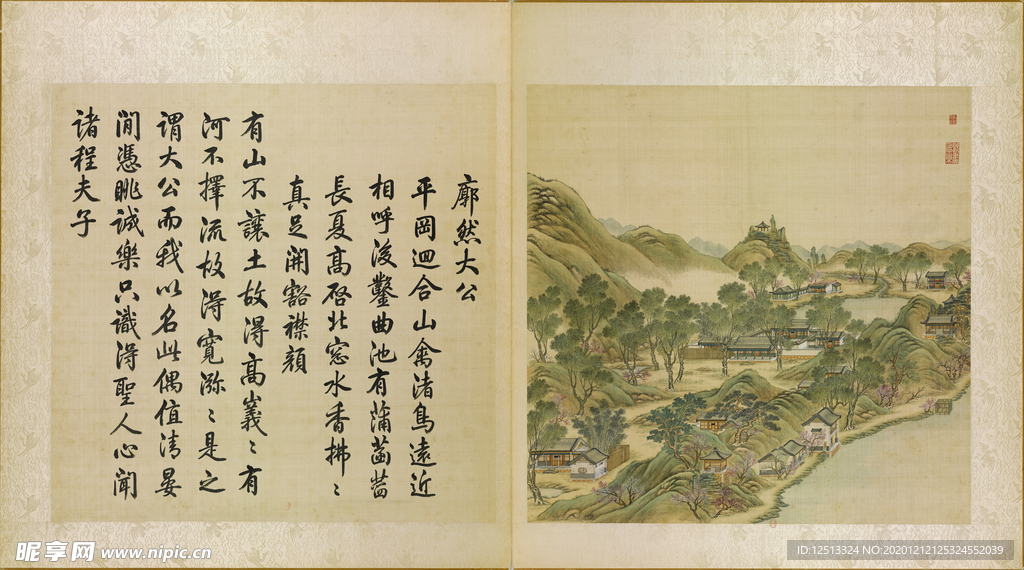 廓然大公
平岡迴合山禽渚鳥遠近
相呼後鑿曲池有蒲菡萏
長夏高啓北窓水香拂〻
真足開豁襟顏
有山不讓土故得高峩〻有
河不擇流故得寬瀰〻是之
謂大公而我以名此偶值清晏
閒憑眺誠樂只識得聖人心聞
諸程夫子
昵享网 www.nipic.cn
ID:12513324 NO:20201212125324552039